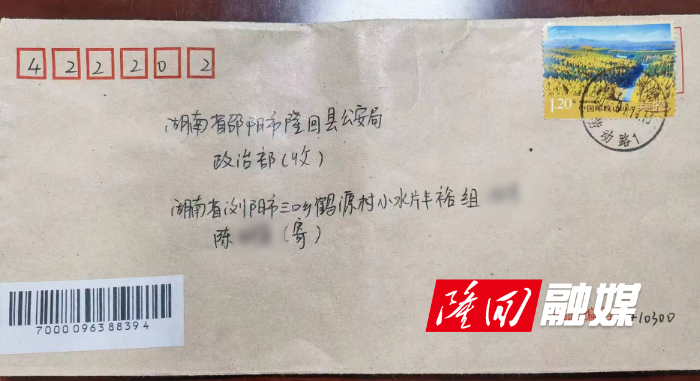 422202
1.20
中国邮政
湖南省邵阳市隆回县公安局
政治部(收)
湖南省浏阳市三口乡鹤源村小水片丰裕组
陈
(寄)
劳动路1
7000096388394
隆回融媒
410300